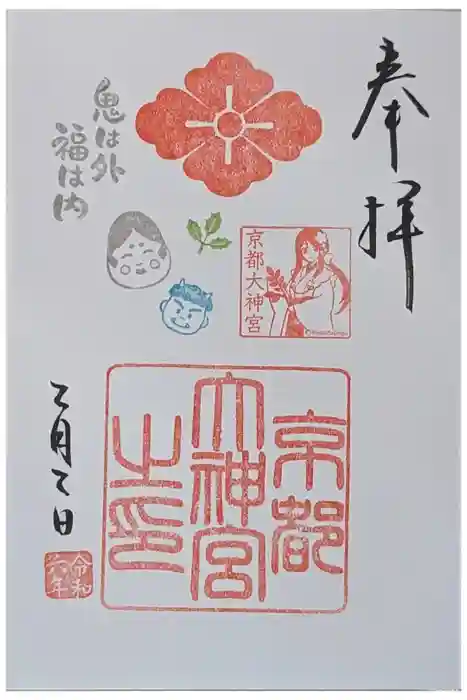 奉拝
鬼は外
福は内
京都大神宮
京都
大神宮
之印
二月二日
令和
六年